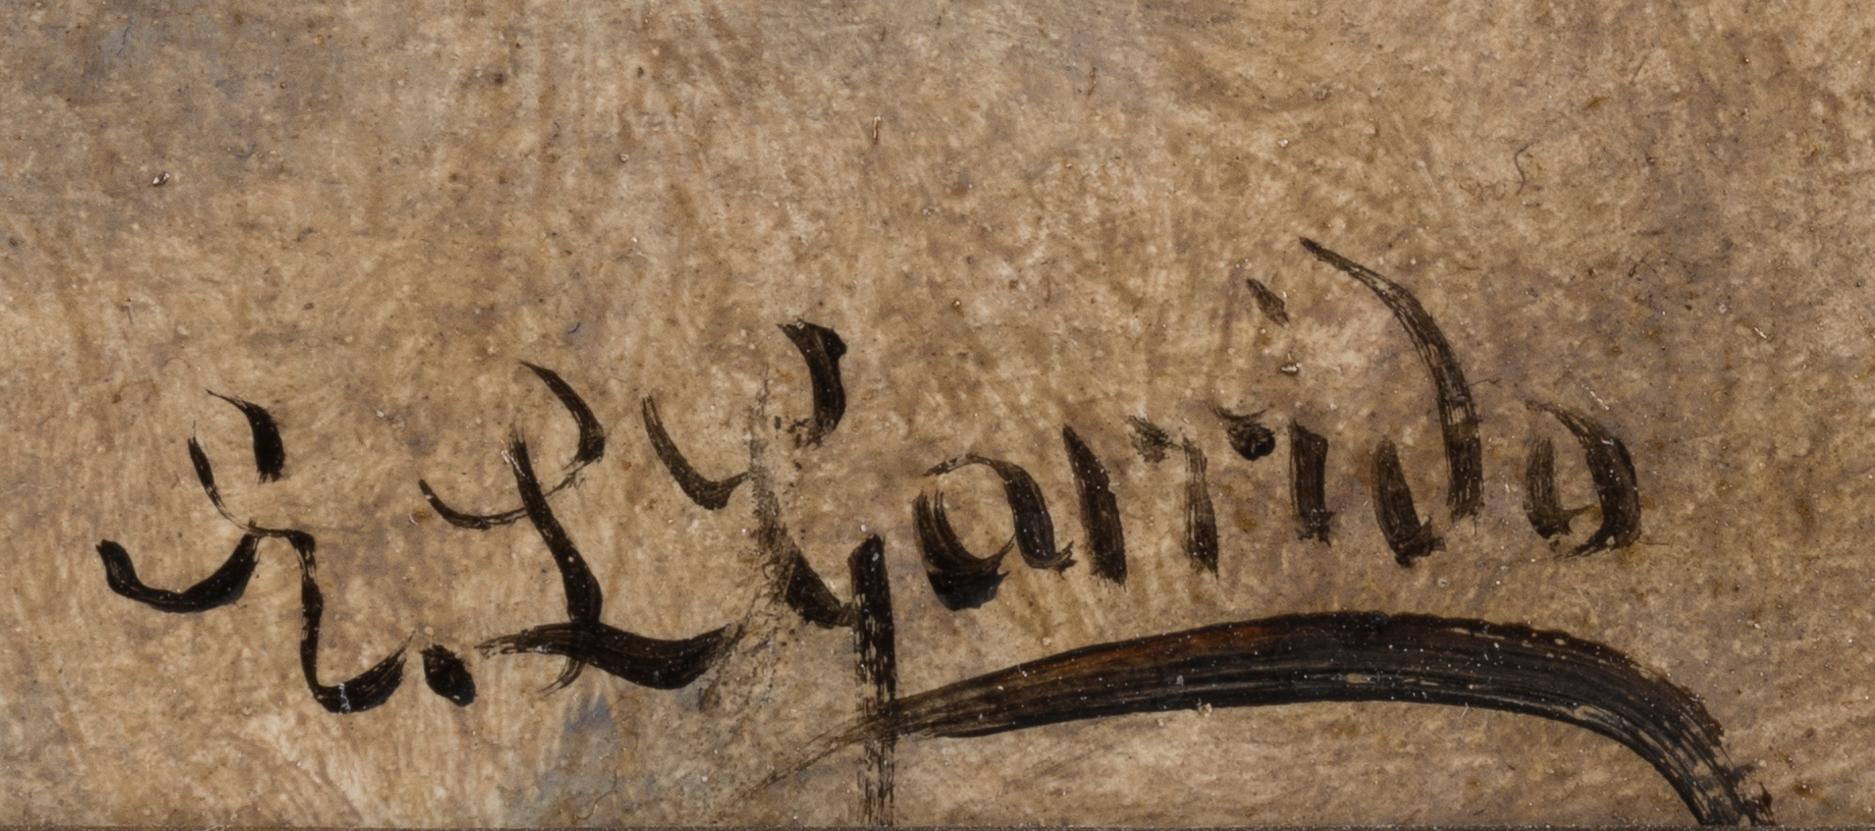 E. L Garrido